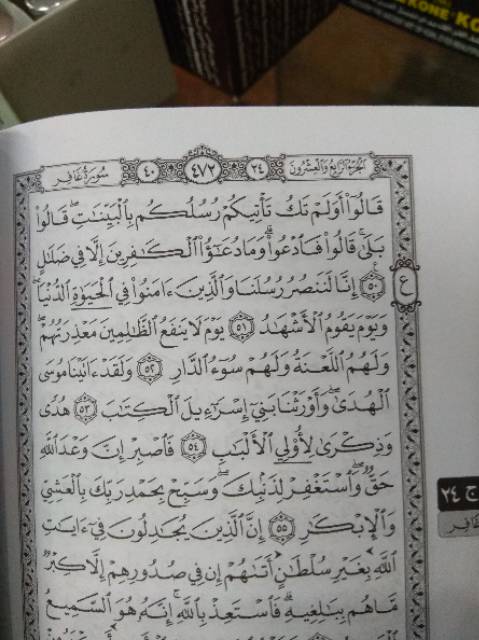 KONE KO
سُورَةُ غَافِرٍ ٤٠ ٤٧٢ ٢٤ الجُزْءُ الرَّابِعُ وَالعِشْرُونَ
قَالُوٓا۟ أَوَلَمْ تَكُ تَأْتِيكُمْ رُسُلُكُم بِٱلْبَيِّنَٰتِ ۖ قَالُوا۟
بَلَىٰ ۚ قَالُوا۟ فَٱدْعُوا۟ ۗ وَمَا دُعَٰٓؤُا۟ ٱلْكَٰفِرِينَ إِلَّا فِى ضَلَٰلٍ
٥٠ إِنَّا لَنَنصُرُ رُسُلَنَا وَٱلَّذِينَ ءَامَنُوا۟ فِى ٱلْحَيَوٰةِ ٱلدُّنْيَا
ع
وَيَوْمَ يَقُومُ ٱلْأَشْهَٰدُ ٥١ يَوْمَ لَا يَنفَعُ ٱلظَّٰلِمِينَ مَعْذِرَتُهُمْ ۖ
وَلَهُمُ ٱللَّعْنَةُ وَلَهُمْ سُوٓءُ ٱلدَّارِ ٥٢ وَلَقَدْ ءَاتَيْنَا مُوسَى
ٱلْهُدَىٰ وَأَوْرَثْنَا بَنِىٓ إِسْرَٰٓءِيلَ ٱلْكِتَٰبَ ٥٣ هُدًى
وَذِكْرَىٰ لِأُو۟لِى ٱلْأَلْبَٰبِ ٥٤ فَٱصْبِرْ إِنَّ وَعْدَ ٱللَّهِ
حَقٌّ وَٱسْتَغْفِرْ لِذَنۢبِكَ وَسَبِّحْ بِحَمْدِ رَبِّكَ بِٱلْعَشِىِّ
وَٱلْإِبْكَٰرِ ٥٥ إِنَّ ٱلَّذِينَ يُجَٰدِلُونَ فِىٓ ءَايَٰتِ
ٱللَّهِ بِغَيْرِ سُلْطَٰنٍ أَتَىٰهُمْ ۙ إِن فِى صُدُورِهِمْ إِلَّا كِبْرٌ
مَّا هُم بِبَٰلِغِيهِ ۚ فَٱسْتَعِذْ بِٱللَّهِ ۖ إِنَّهُۥ هُوَ ٱلسَّمِيعُ
ج ٢٤
غَافِر